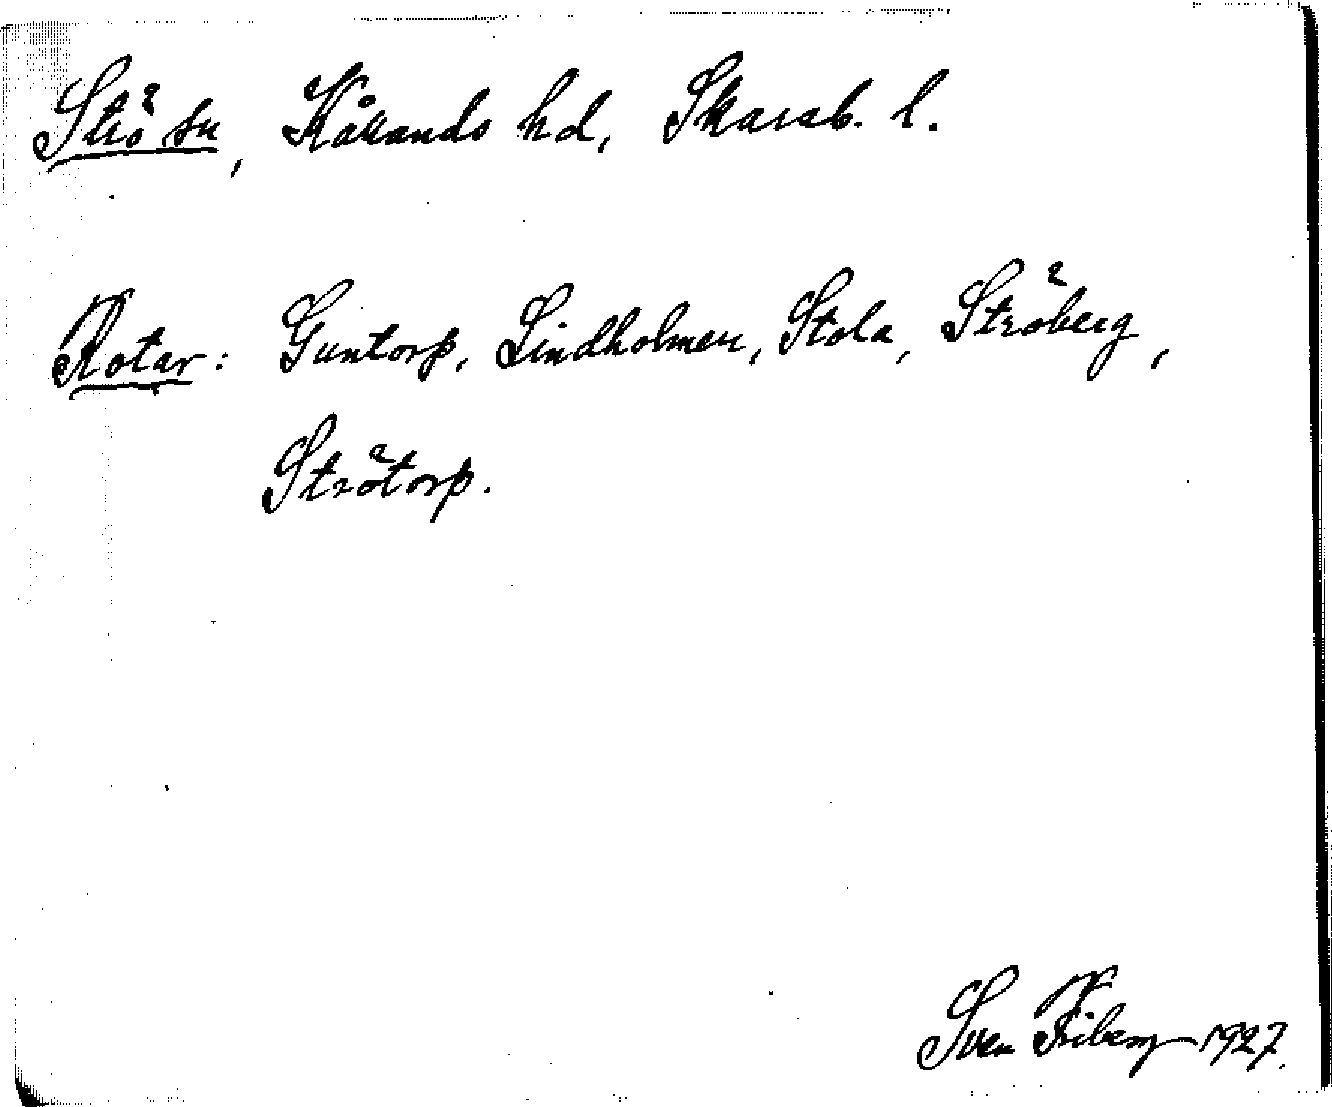 Strö sn, Kålands hd, Skarab. l.
Rotar: Guntorp, Lindholmen, Stola, Ströberg,
Strötorp.
Sven Friberg 1927.